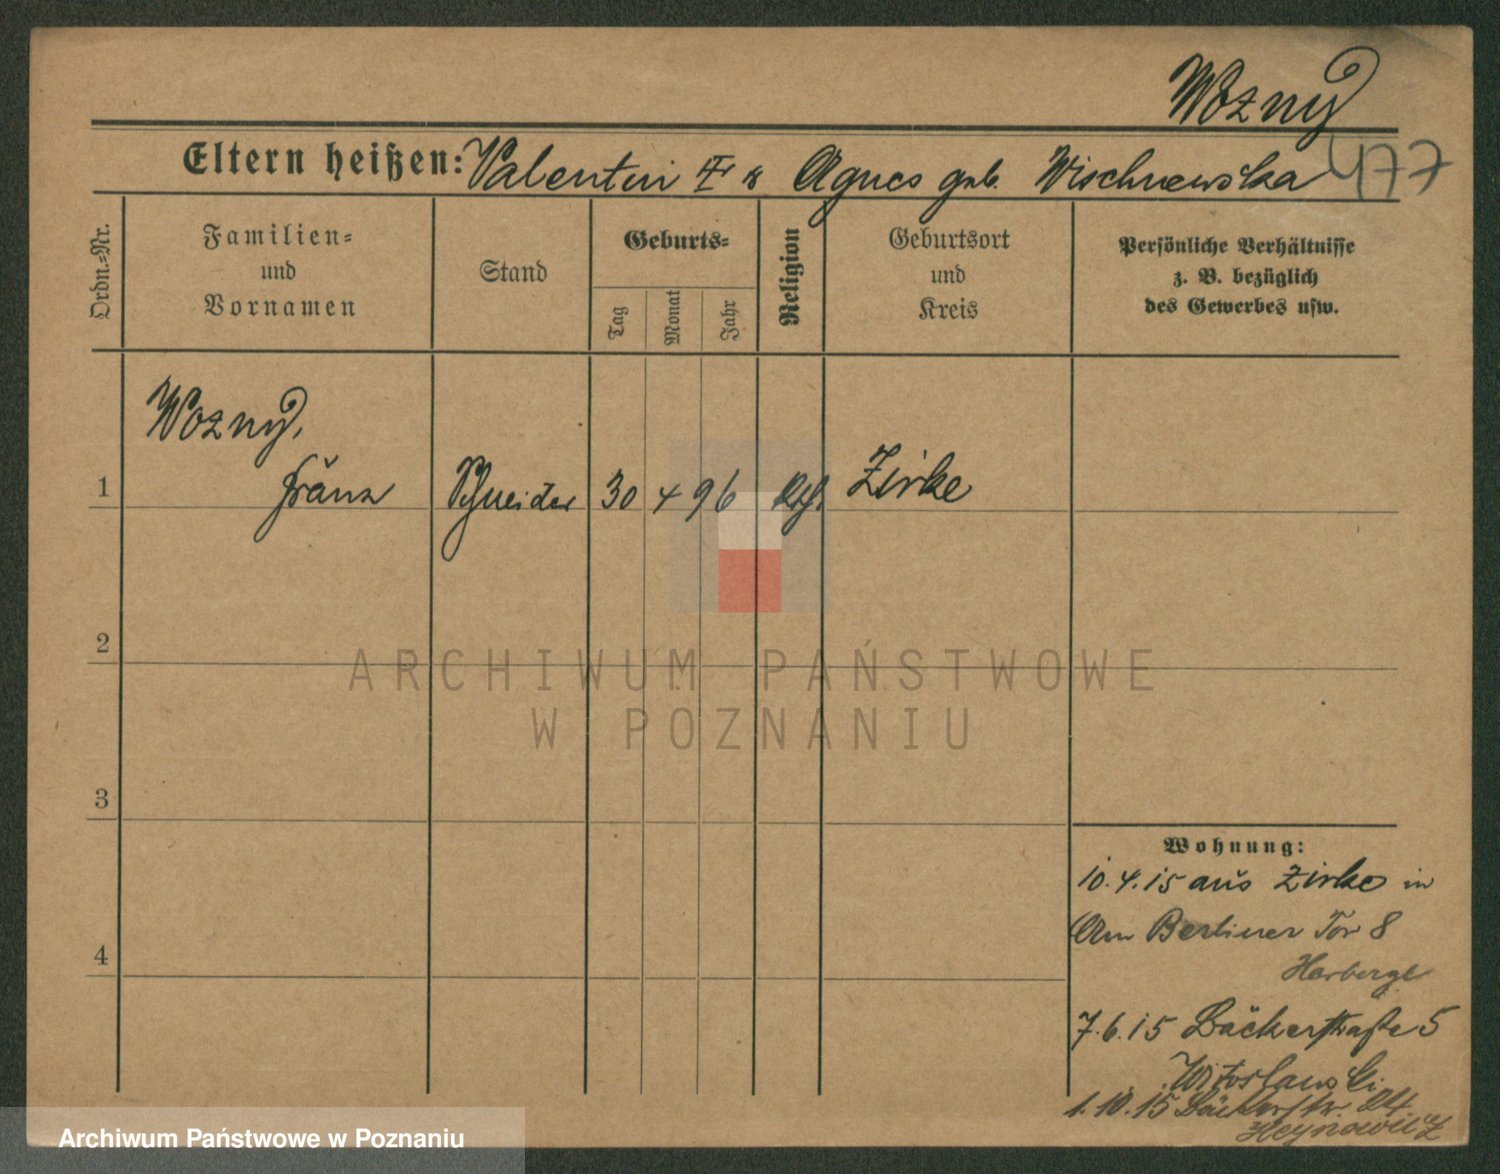 Wozny
Eltern heißen: Valentin u Agnes geb. Wischnewska 477
Ordn.-Nr.
Familien-
und
Vornamen
Stand
Geburts-
Tag
Monat
Jahr
Religion
Geburtsort
und
Kreis
Persönliche Verhältnisse
z. B. bezüglich
des Gewerbes usw.
Wozny,
1 Franz Schneider 30 4 96 kth Zirke
2
3
4
Wohnung:
10.4.15 aus Zirke in
Am Berliner Tor 8
Herberge
7.6.15 Bäckerstraße 5
Witoslawski
1.10.15 Bäckerstr. 24
Heynowicz
ARCHIWUM PAŃSTWOWE
W POZNANIU
Archiwum Państwowe w Poznaniu